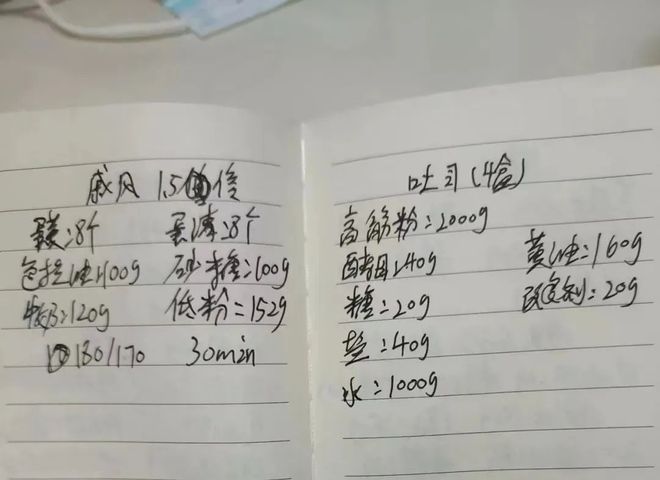 戚风 1.5倍
蛋黄:8个 蛋清:8个
色拉油:100g 砂糖:100g
牛奶:120g 低粉:152g
180/170 30min
吐司(4盒)
高筋粉:2000g
酵母:40g 黄油:160g
糖:20g 改良剂:20g
盐:40g
水:1000g